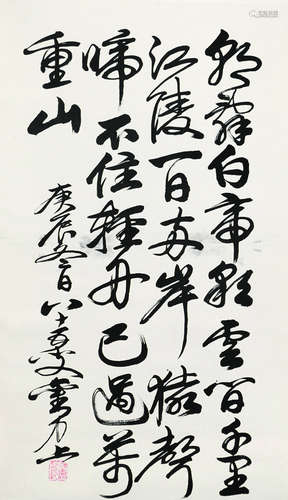 朝辭白帝彩雲間千里
江陵一日兩岸猿聲
啼不住輕舟已過萬
重山
庚辰冬日八十叟